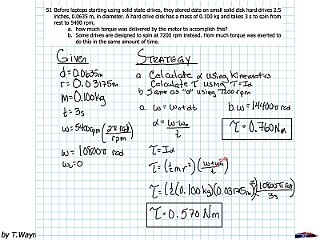 51. Before laptops starting using solid state drives, they stored data on small solid disk hard drives 2.5
inches, 0.0635 m, in diameter. A hard drive disk has a mass of 0.100 kg and takes 3 s to spin from
rest to 5400 rpm.
a. how much torque was delivered by the motor to accomplish this?
b. Some drives are designed to spin at 7200 rpm instead. How much torque was exerted to
do this in the same amount of time.
Given
Strategy
d=0.0635m
r=0.03175m
m=0.100kg
t=3s
ω=5400rpm (2π rad / rpm)
ω=10800π rad
ω₀=0
a Calculate α using kinematics
Calculate τ using τ=Iα
b Same as "a" using 7200 rpm
a. ω=ω₀+αt
α= ω-ω₀ / t
τ=Iα
τ=(½mr²)(ω-ω₀ / t)
τ=(½(0.100kg)(0.03175m)²)(10800π rad / 3s)
τ=0.570 Nm
b. ω=14400π rad
τ=0.760Nm
by T.Wayn